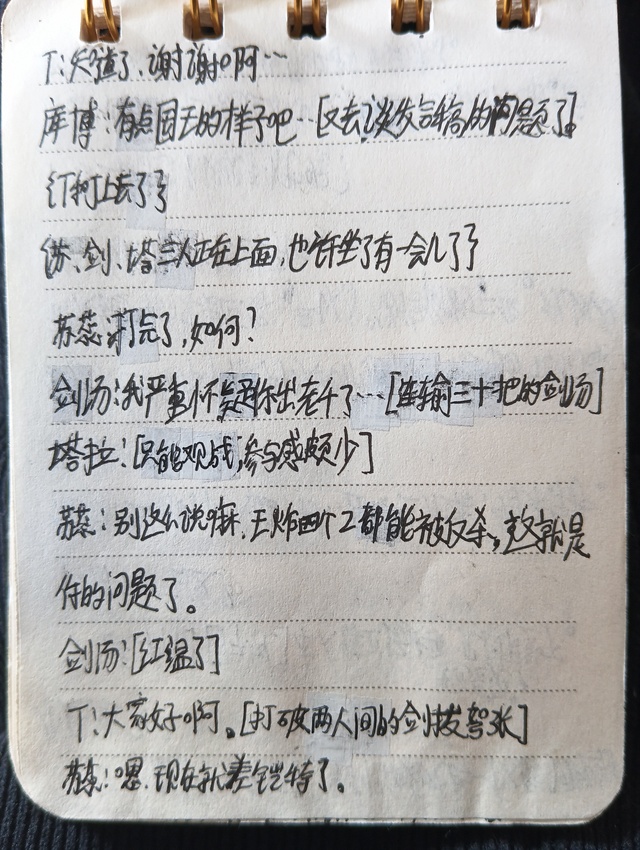 T:知道了,谢谢啊…
库博:有点国王的样子吧…[又去谈发言稿的问题了]
T上去了了
苏、剑、塔三人正在上面,也许坐了有一会儿了了
苏蕊:打完了,如何?
剑汤:我严重怀疑是你出老千了…[连输三十把的剑汤]
塔拉:[只能观战,参与感颇少]
苏蕊:别这么说嘛,王炸四个2都能被反杀,这就是
你的问题了。
剑汤:[红温了]
T:大家好啊。[打破两人间的剑拔弩张]
苏蕊:嗯,现在就差铠特了。